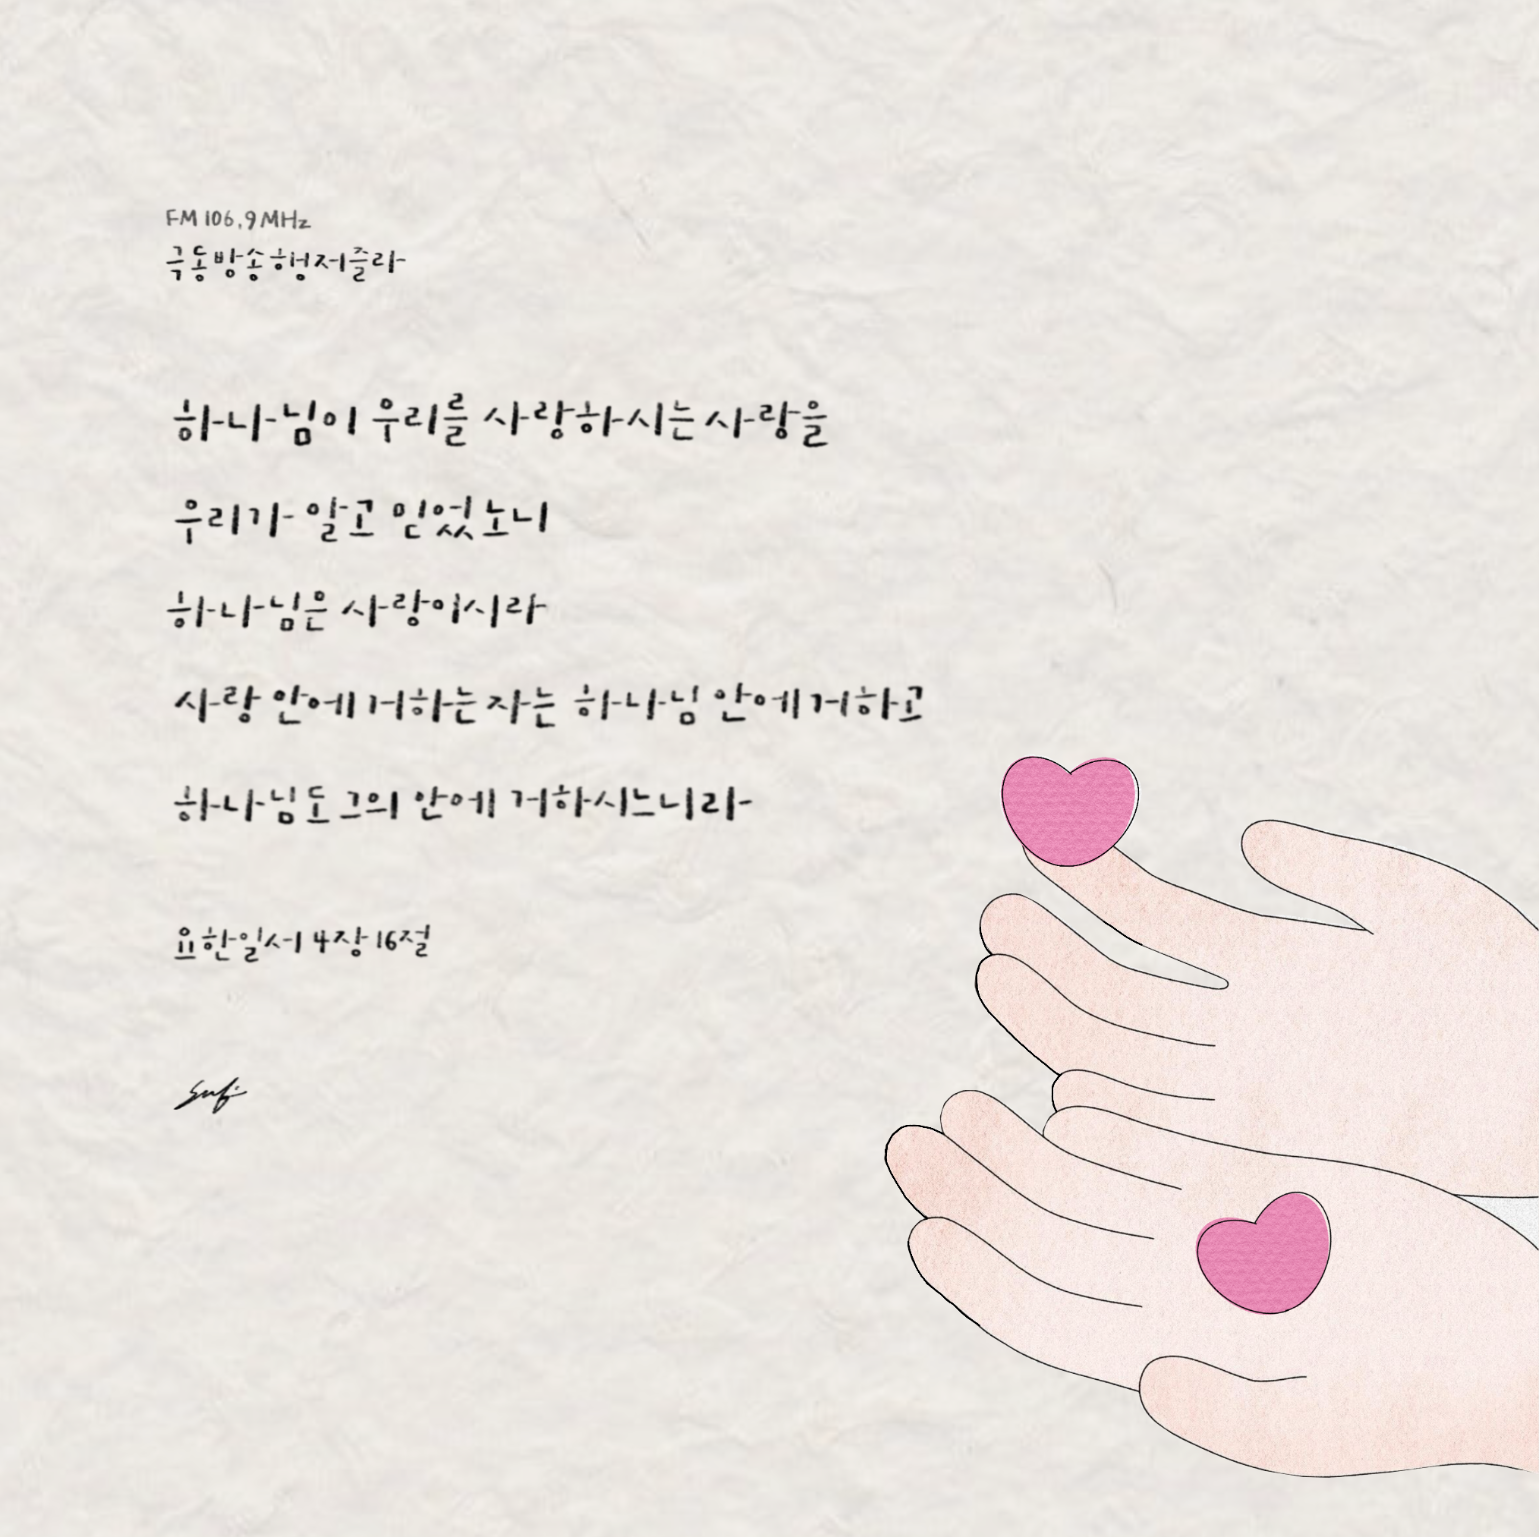 FM 106.9MHz
극동방송형제줄라
하나님이 우리를 사랑하시는 사랑을
우리가 알고 믿었노니
하나님은 사랑이시라
사랑 안에 거하는 자는 하나님 안에 거하고
하나님도 그의 안에 거하시느니라
요한일서 4장 16절